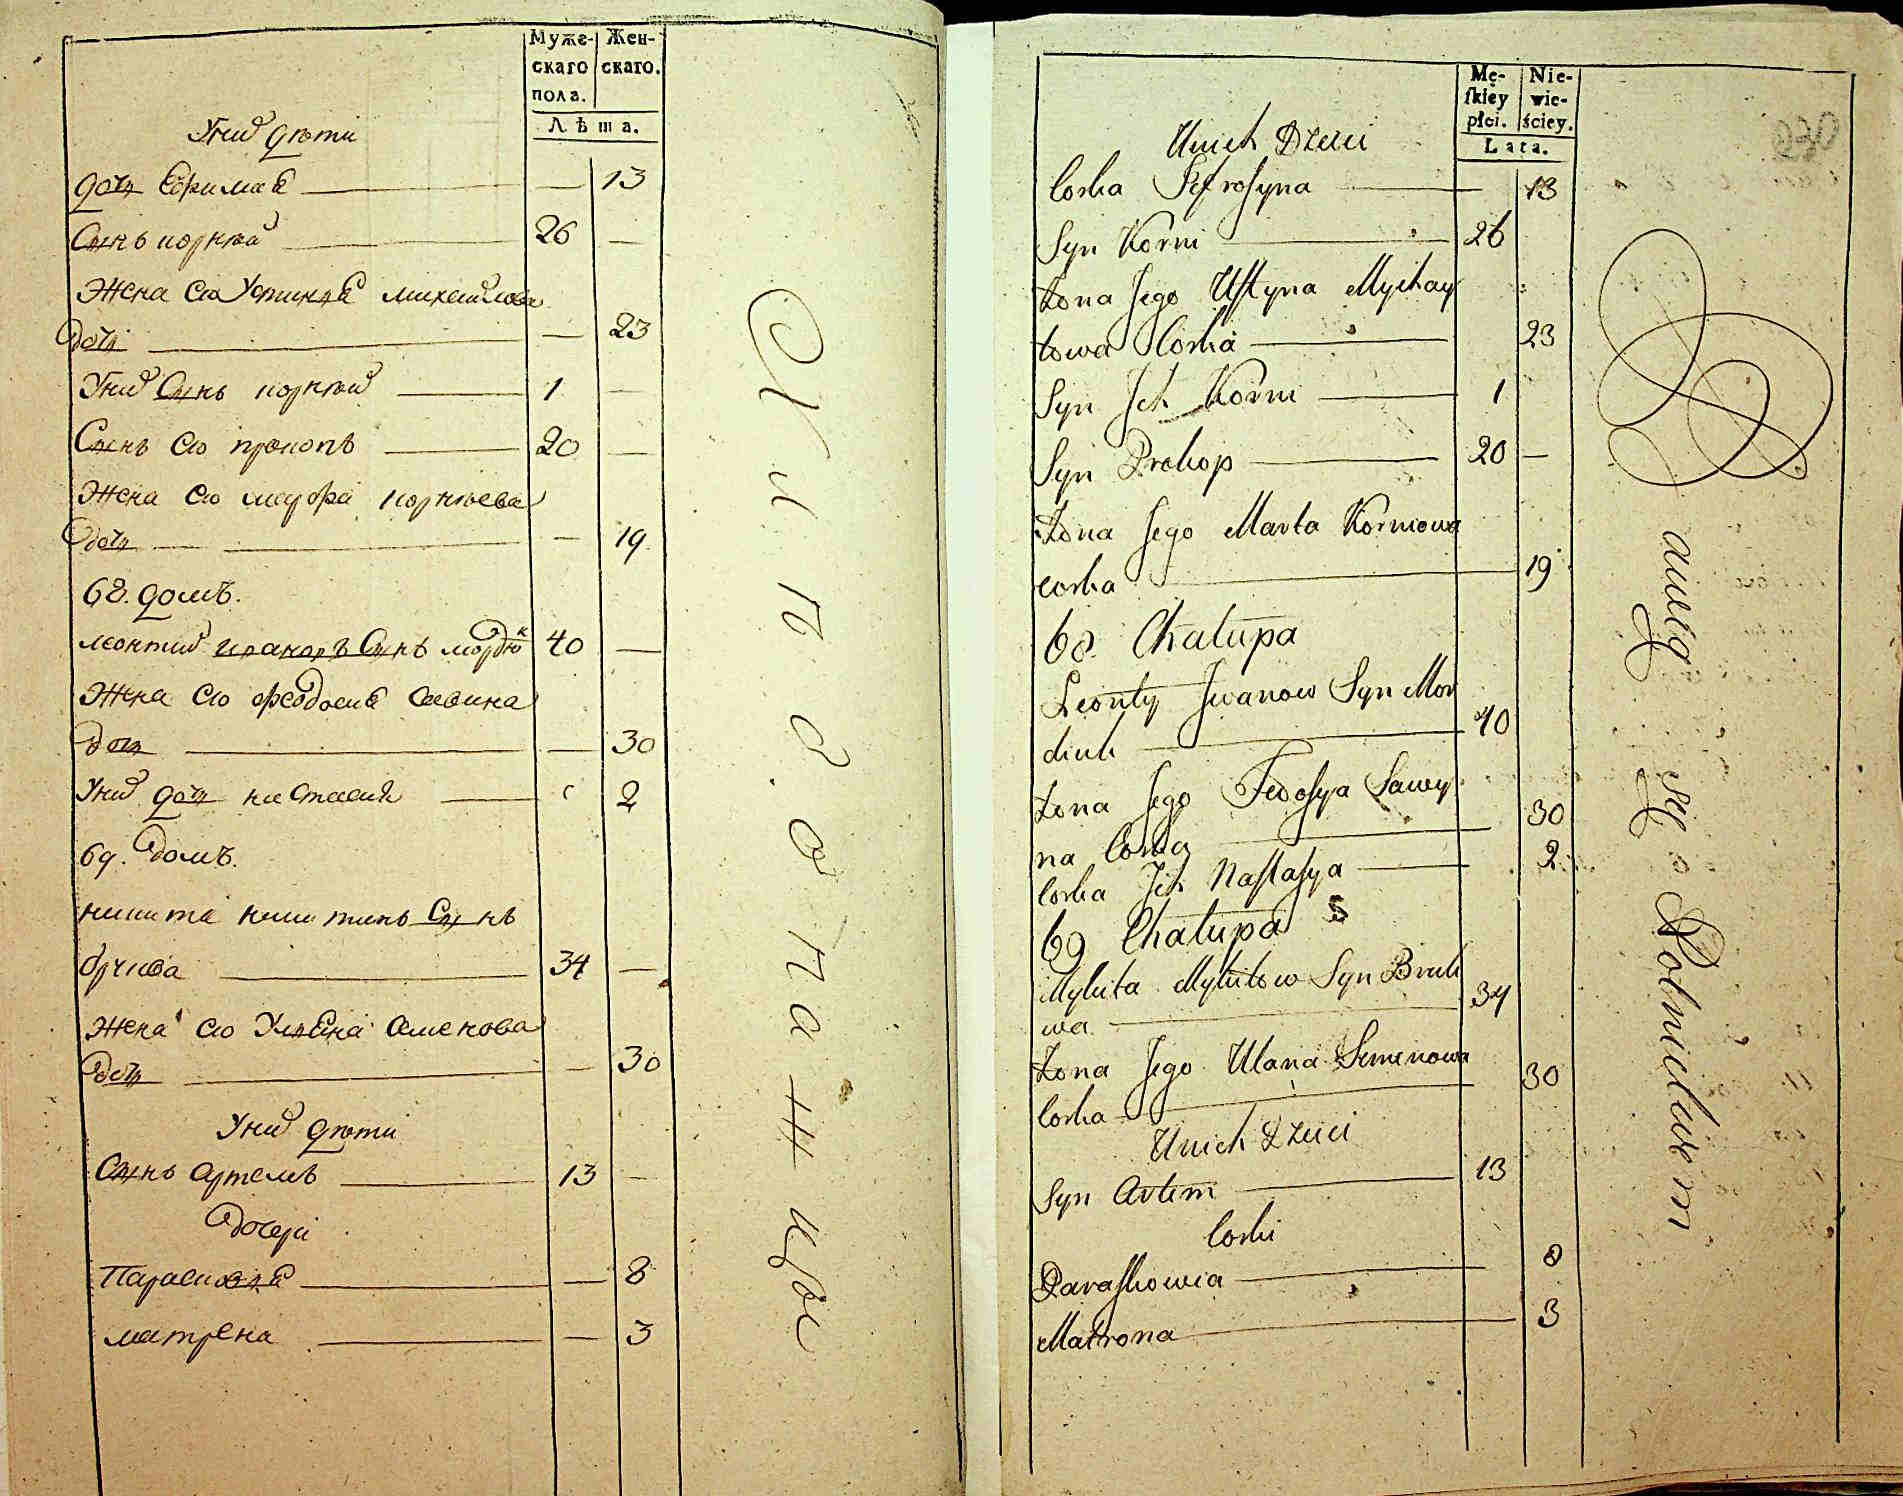 Муже-
скаго
пола.
Жен-
скаго.
Лѣта.
У них дѣти
дочь 13
Сынъ корнѣй 26
Жена ево Устинья михайлова
дочь 23
У них Сынъ корнѣй 1
Сынъ ево прокопъ 20
Жена ево марфа корнѣева
дочь 19
68. домъ.
леонтий Сынъ мордюк 40
Жена ево феодосия савина
дочь 30
У них дочь настасия 2
69. домъ.
никита никитинъ Сынъ
34
Жена ево Ульяна семенова
дочь 30
У них дѣти
Сынъ артемъ 13
дочери
Парасковья 8
матрена 3
Mę-
ſkiey
płci.
Nie-
wie-
ściey.
Lata.
U nich Dzieci
Corka 13
Syn Korni 26
Żona Jego Uſtyna Mychay
łowa Corka 23
Syn Ich Korni 1
Syn Prokop 20 —
Żona Jego Marta Korniowa
corka 19
68. Chałupa
Leonty Iwanow Syn Mor
diuk 40
Żona Jego Fedoſya Sawy
na Corka 30
Corka Ich Naſtaſya 2
69 Chałupa
Mykita Mykitow Syn
wa 34
Żona Jego Ulana Semenowa
Corka 30
U nich Dzieci
Syn Artem 13
Corki
Paraſkowia 8
Matrona 3
się Rolnictwem